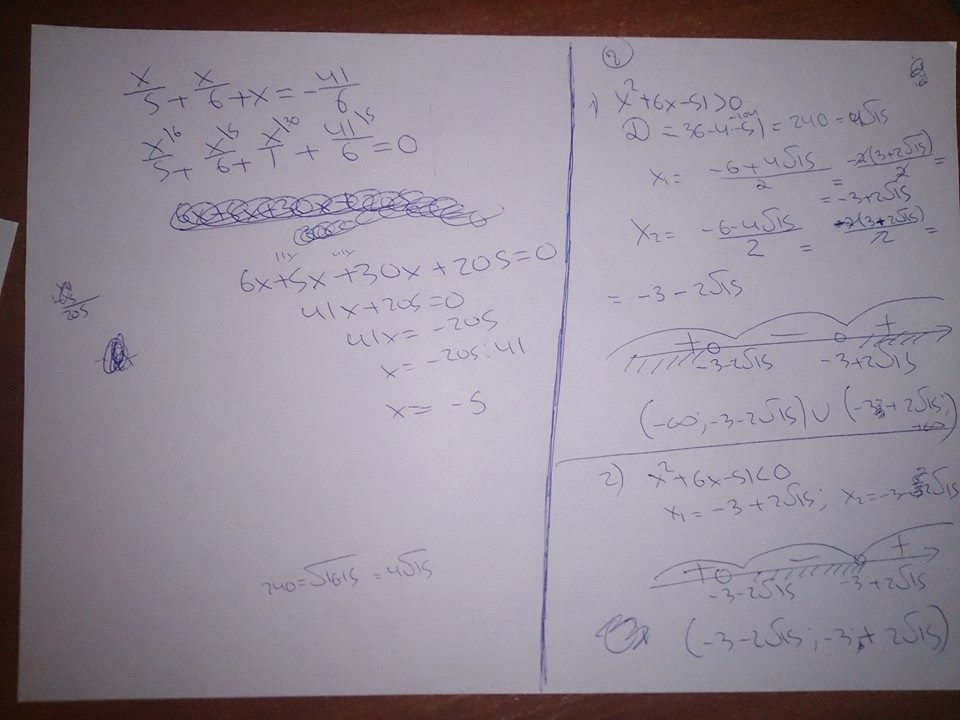 x/5 + x/6 + x = -41/6
x\6/5 + x\5/6 + x\30/1 + 41\5/6 = 0
11x 41x
6x+5x+30x+205=0
41x+205=0
41x= -205
x= -205:41
x= -5
205
240=√16·15 =4√15
2
1) x²+6x-51>0
D = 36-4·(-51) = 240 = 4√15
x₁= (-6+4√15)/2 = -2(3+2√15)/2 =
= -3+2√15
x₂= (-6-4√15)/2 = -2(3+2√15)/2 =
= -3-2√15
+ - +
-3-2√15 -3+2√15
(-∞; -3-2√15) ∪ (-3+2√15;
+∞)
2) x²+6x-51<0
x₁= -3+2√15; x₂=-3-2√15
+ - +
-3-2√15 -3+2√15
(-3-2√15; -3+2√15)